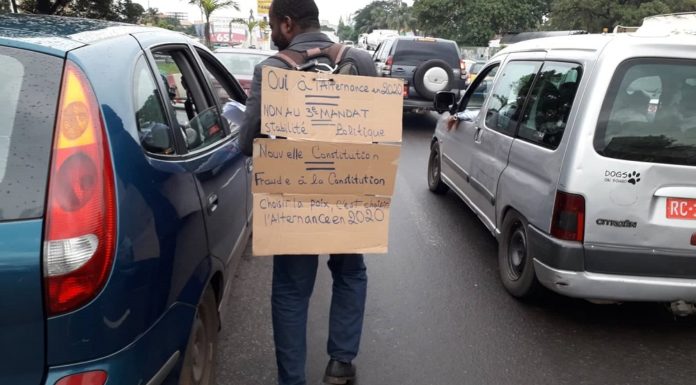 Oui à l'Alternance en 2020
NON AU 3e MANDAT
Stabilité Politique
Nouvelle Constitution
Fraude à la Constitution
Choisir la paix, c'est choisir
l'Alternance en 2020
DOGS
ON BOARD
CITROËN
RC-1